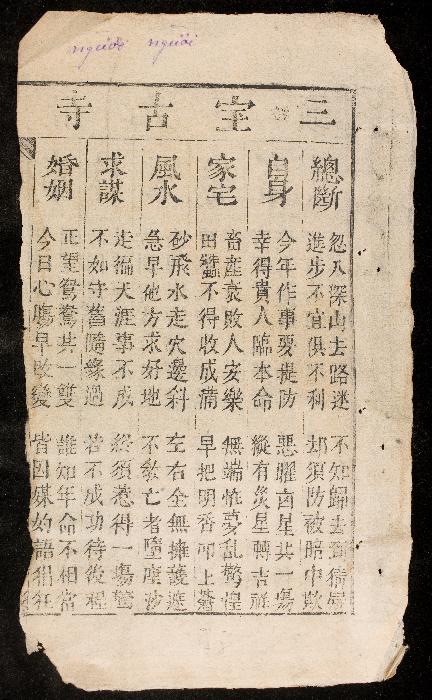 người người
三宝古寺
總斷
忽入深山去路迷 不知歸去
進步不宜俱不利 却須防被暗中欺
自身
今年作事要提防 惡曜凶星共一傷
幸得貴人臨本命 縱有災星轉吉祥
家宅
畜產衰敗人安樂 無端恍夢乱驚惶
田蠶不得收成滿 早把明香叩上蒼
風水
砂飛水走穴邊斜 左右全無擁護遮
急早他方求好地 不教亡者墮塵沙
求謀
走徧天涯事不成 終須惹得一場驚
不如守舊隨緣過 若不成功待後程
婚姻
正望鴛鴦共一雙 誰知年命不相當
今日心腸早改變 皆因媒妁語猖狂